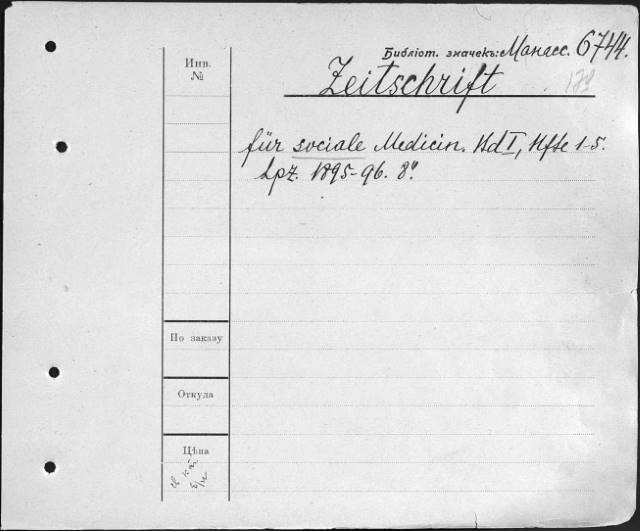 Библіот. значекъ: Манасс. 6744.
Инв. №
Zeitschrift
für sociale Medicin. Bd I, Hfte 1-5.
Lpz. 1895-96. 8°.
По заказу
Откуда
Цѣна